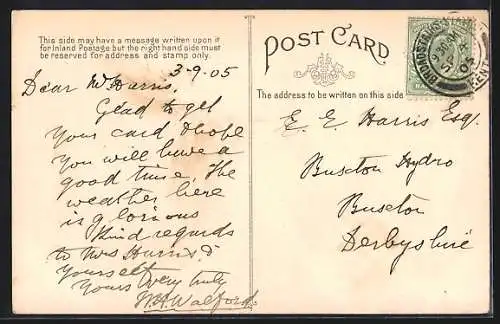 This side may have a message written upon it
for Inland Postage but the right hand side must
be reserved for address and stamp only.
3-9-05
Dear Mr Harris,
Glad to get
your card & hope
you will have a
good time, The
weather here
is glorious
Kind regards
to Mrs Harris &
yourself
Yours very truly
W.H. Walford
POST CARD
The address to be written on this side
BROADSTAIRS
9 30 AM
SP 4
05
KENT
E. E. Harris Esq.
Buxton Hydro
Buxton
Derbyshire